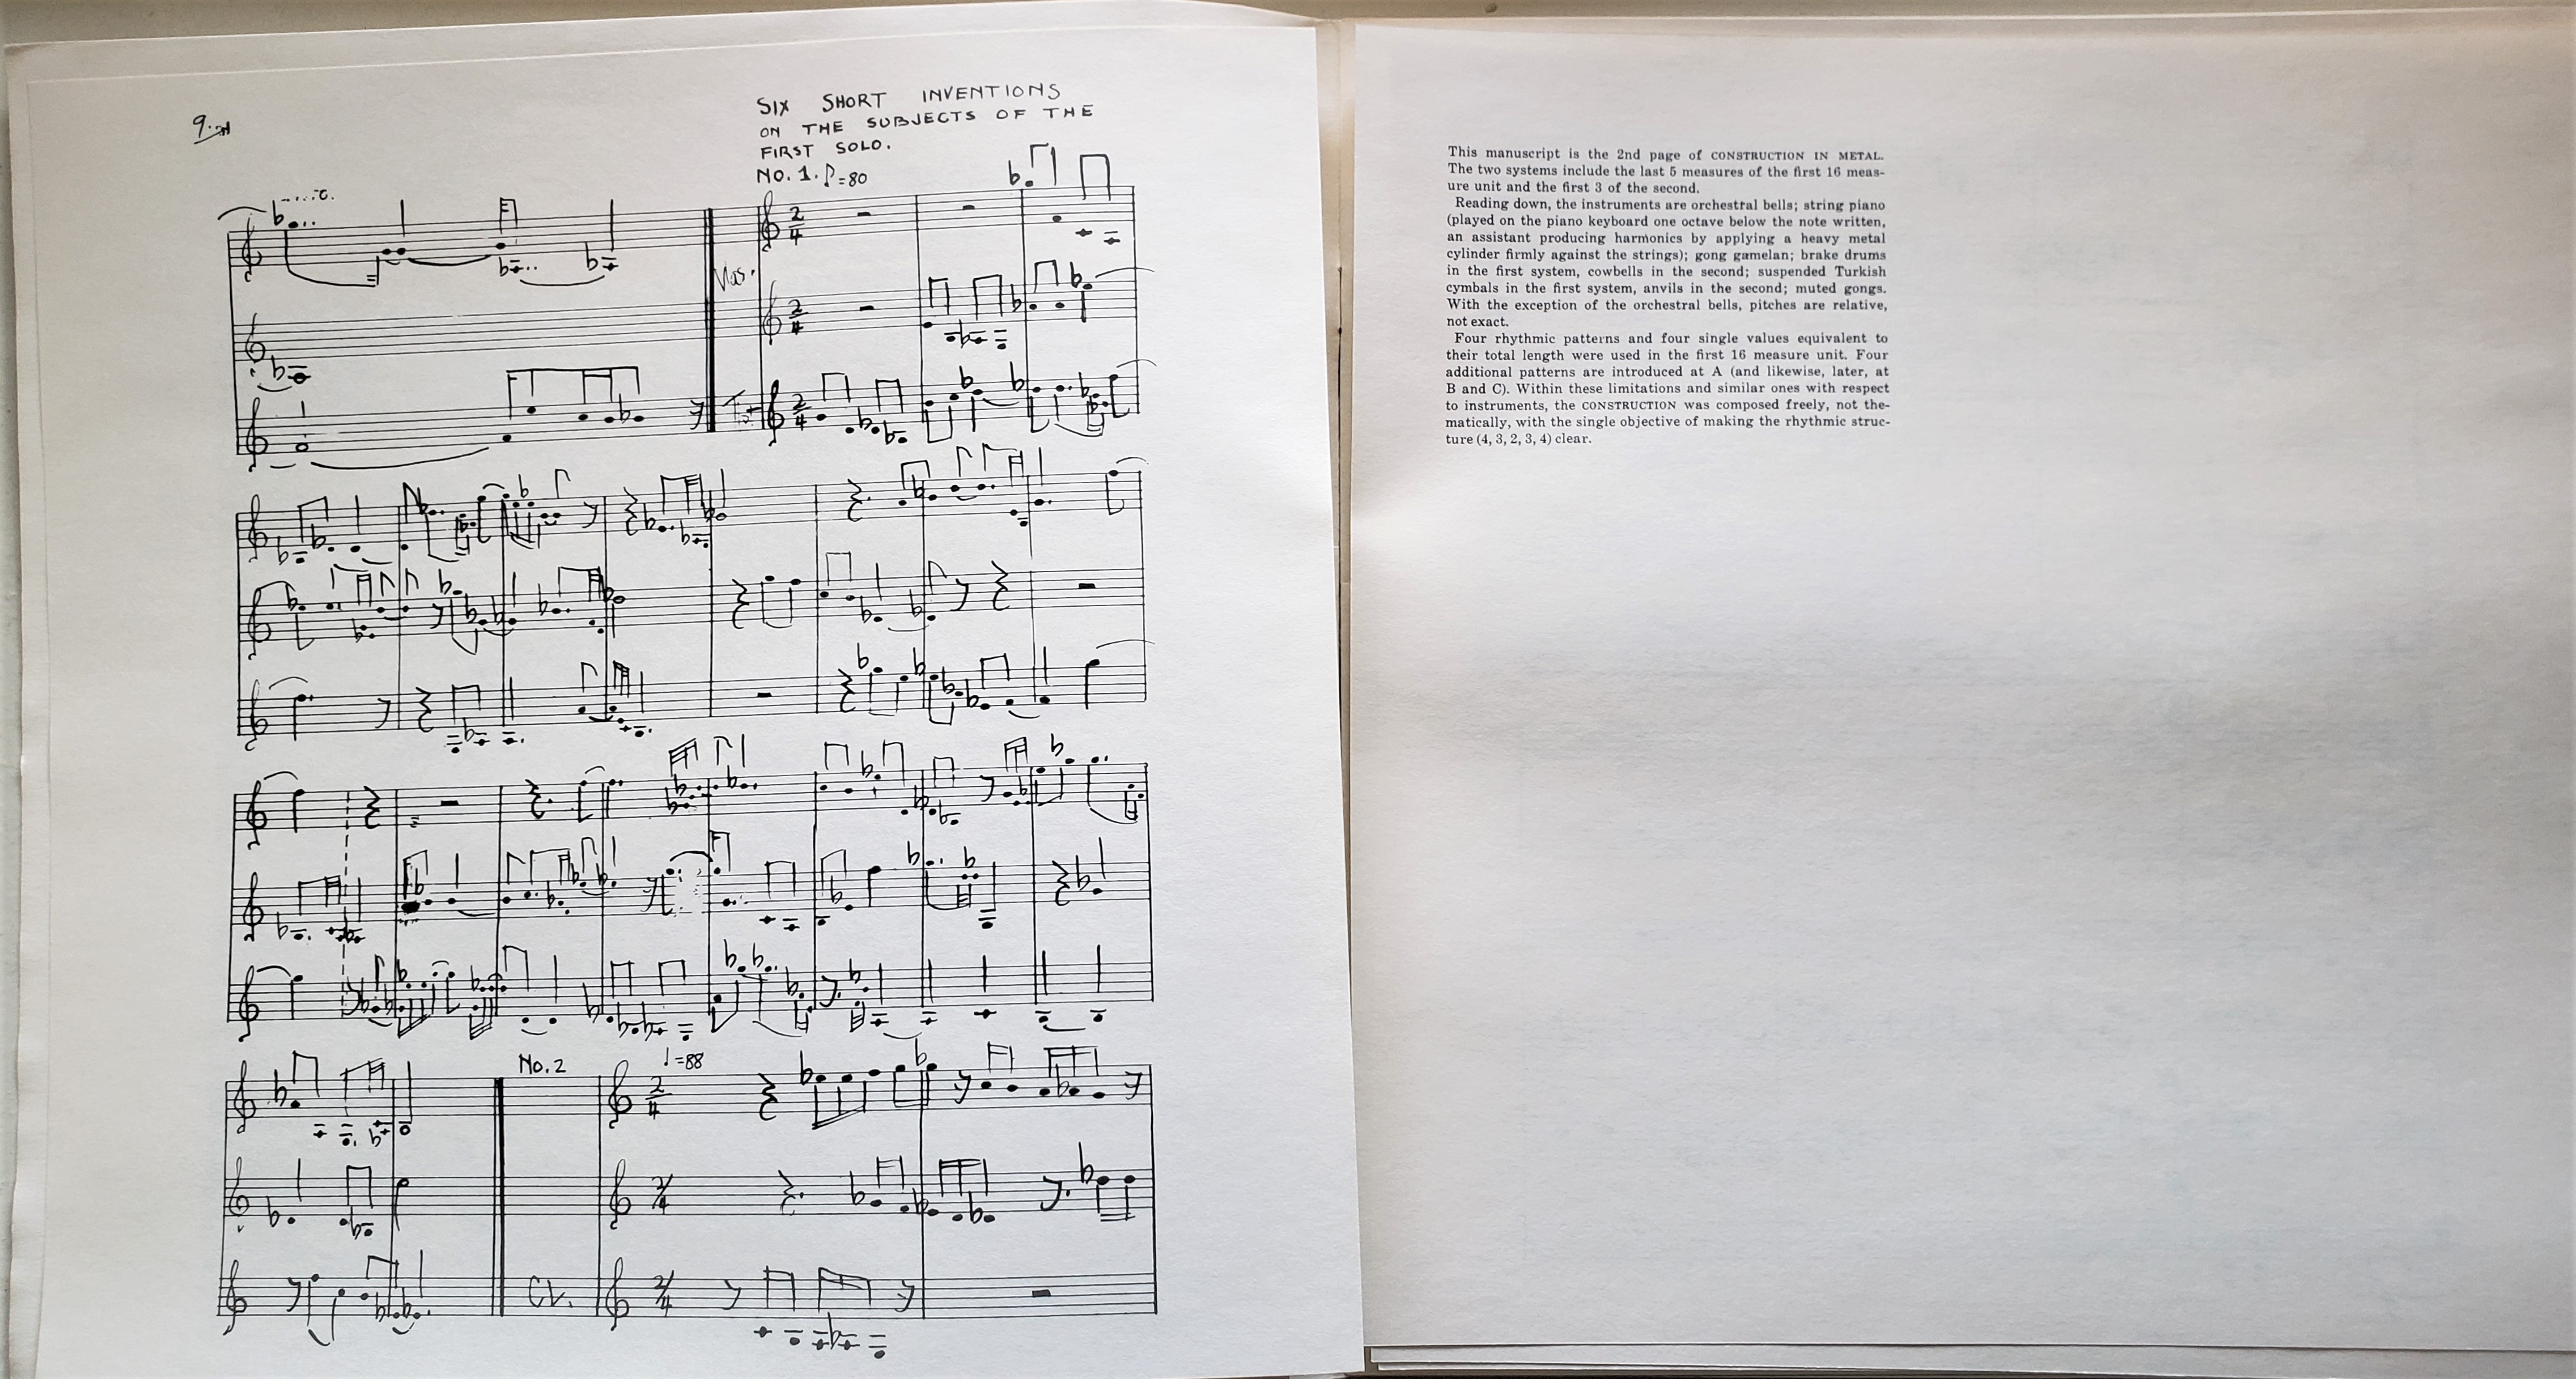 9.
SIX SHORT INVENTIONS
ON THE SUBJECTS OF THE
FIRST SOLO.
NO. 1. ♪=80
2/4
2/4
2/4
No. 2
♩=88
2/4
2/4
CL.
2/4
This manuscript is the 2nd page of CONSTRUCTION IN METAL.
The two systems include the last 5 measures of the first 16 meas-
ure unit and the first 3 of the second.
Reading down, the instruments are orchestral bells; string piano
(played on the piano keyboard one octave below the note written,
an assistant producing harmonics by applying a heavy metal
cylinder firmly against the strings); gong gamelan; brake drums
in the first system, cowbells in the second; suspended Turkish
cymbals in the first system, anvils in the second; muted gongs.
With the exception of the orchestral bells, pitches are relative,
not exact.
Four rhythmic patterns and four single values equivalent to
their total length were used in the first 16 measure unit. Four
additional patterns are introduced at A (and likewise, later, at
B and C). Within these limitations and similar ones with respect
to instruments, the CONSTRUCTION was composed freely, not the-
matically, with the single objective of making the rhythmic struc-
ture (4, 3, 2, 3, 4) clear.